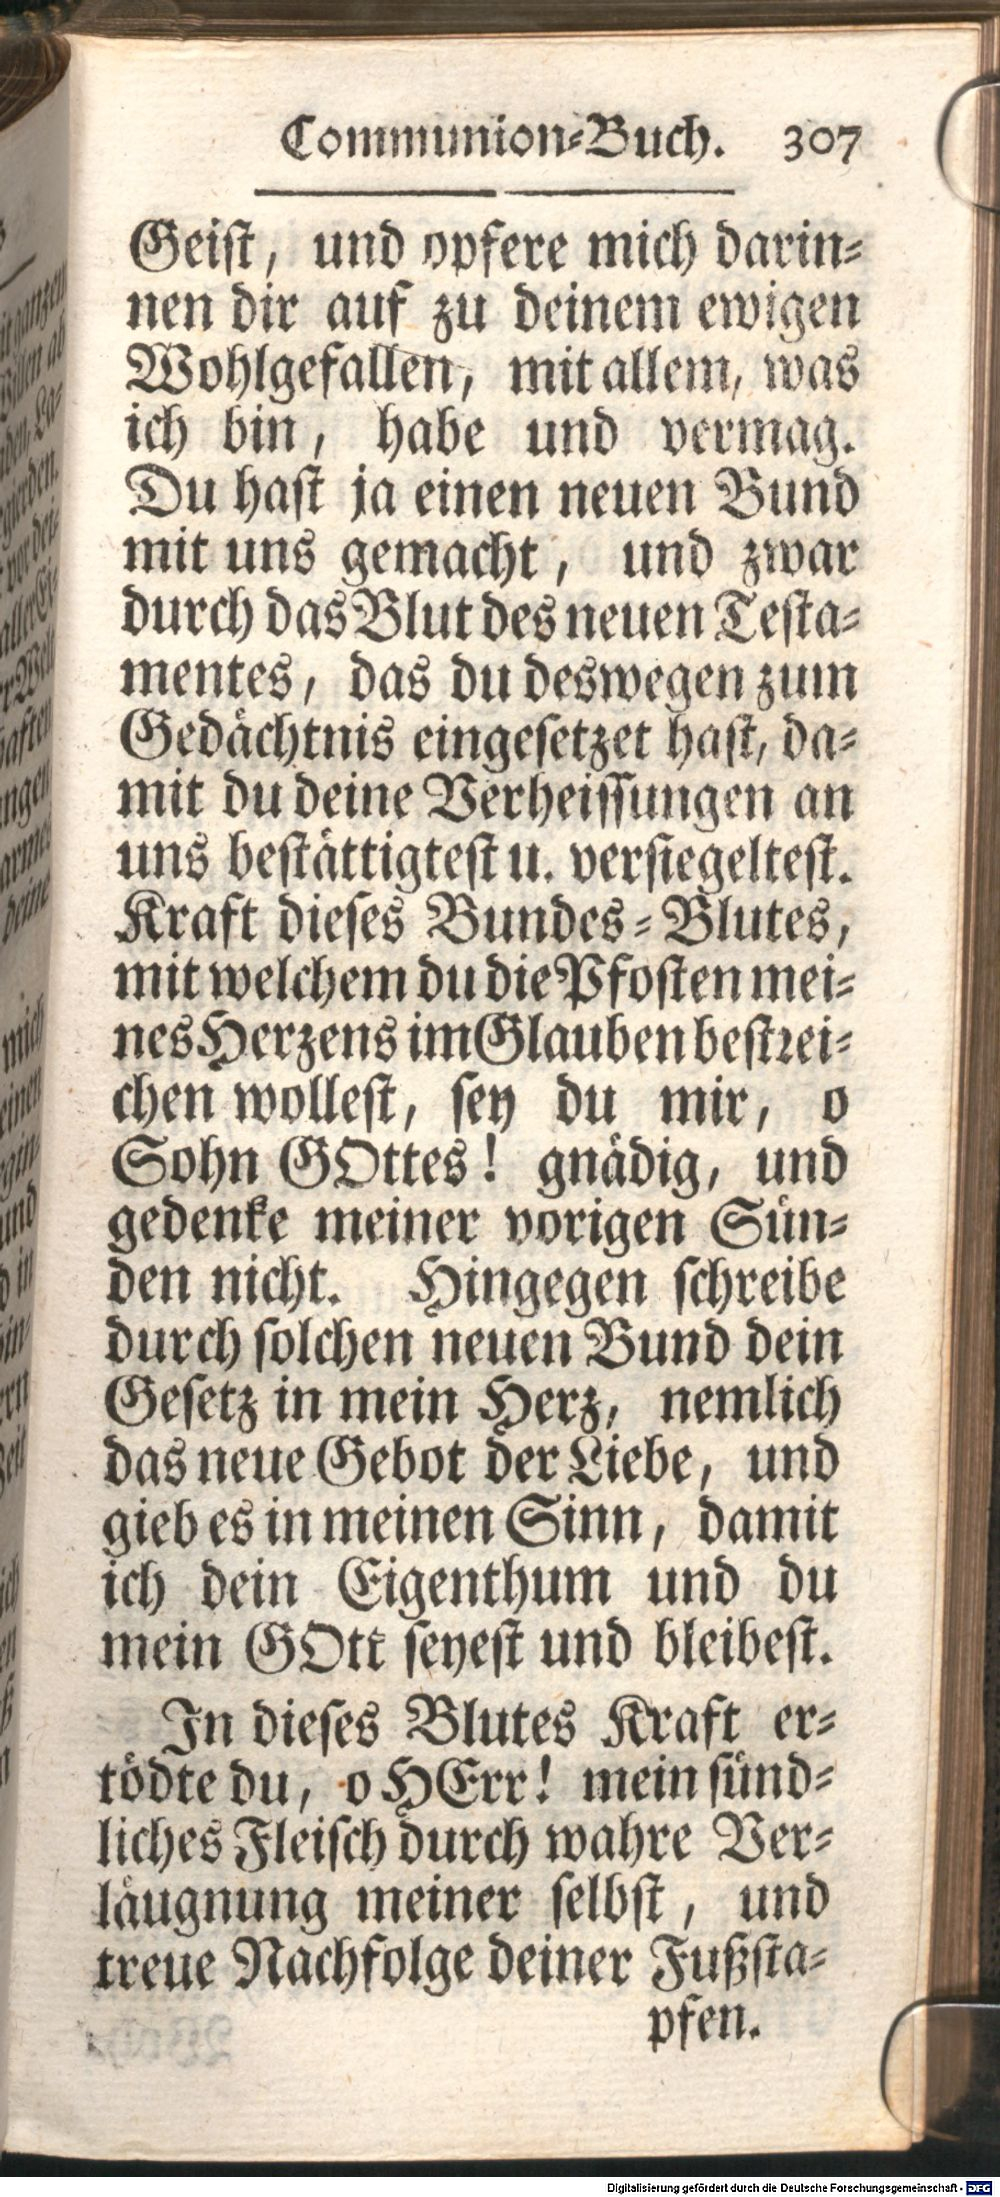 Communion-Buch. 307
Geist, und opfere mich darin-
nen dir auf zu deinem ewigen
Wohlgefallen, mit allem, was
ich bin, habe und vermag.
Du hast ja einen neuen Bund
mit uns gemacht, und zwar
durch das Blut des neuen Testa-
mentes, das du deswegen zum
Gedächtnis eingesetzet hast, da-
mit du deine Verheissungen an
uns bestättigtest u. versiegeltest.
Kraft dieses Bundes-Blutes,
mit welchem du die Pfosten mei-
nes Herzens im Glauben bestrei-
chen wollest, sey du mir, o
Sohn GOttes! gnädig, und
gedenke meiner vorigen Sün-
den nicht. Hingegen schreibe
durch solchen neuen Bund dein
Gesetz in mein Herz, nemlich
das neue Gebot der Liebe, und
gieb es in meinen Sinn, damit
ich dein Eigenthum und du
mein GOtt seyest und bleibest.
In dieses Blutes Kraft er-
tödte du, o HErr! mein sünd-
liches Fleisch durch wahre Ver-
läugnung meiner selbst, und
treue Nachfolge deiner Fußsta-
pfen.
Digitalisierung gefördert durch die Deutsche Forschungsgemeinschaft - DFG